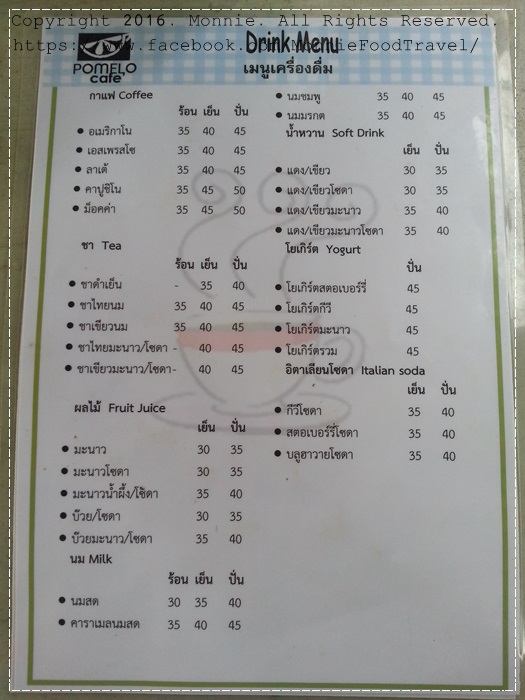 Copyright 2016. Monnie. All Rights Reserved.
https://www.facebook.com/MonnieFoodTravel/
Drink Menu
POMELO
cafe'
เมนูเครื่องดื่ม
กาแฟ Coffee
ร้อน เย็น ปั่น
• อเมริกาโน 35 40 45
• เอสเพรสโซ 35 40 45
• ลาเต้ 35 40 45
• คาปูชิโน 35 45 50
• ม็อคค่า 35 45 50
ชา Tea
ร้อน เย็น ปั่น
• ชาดำเย็น - 35 40
• ชาไทยนม 35 40 45
• ชาเขียวนม 35 40 45
• ชาไทยมะนาว/โซดา - 40 45
• ชาเขียวมะนาว/โซดา - 40 45
ผลไม้ Fruit Juice
เย็น ปั่น
• มะนาว 30 35
• มะนาวโซดา 30 35
• มะนาวน้ำผึ้ง/โซดา 35 40
• บ๊วย/โซดา 30 35
• บ๊วยมะนาว/โซดา 35 40
นม Milk
ร้อน เย็น ปั่น
• นมสด 30 35 40
• คาราเมลนมสด 35 40 45
• นมชมพู 35 40 45
• นมมรกต 35 40 45
น้ำหวาน Soft Drink
เย็น ปั่น
• แดง/เขียว 30 35
• แดง/เขียวโซดา 30 35
• แดง/เขียวมะนาว 35 40
• แดง/เขียวมะนาวโซดา 35 40
โยเกิร์ต Yogurt
ปั่น
• โยเกิร์ตสตอเบอร์รี่ 45
• โยเกิร์ตกีวี 45
• โยเกิร์ตมะนาว 45
• โยเกิร์ตรวม 45
อิตาเลียนโซดา Italian soda
เย็น ปั่น
• กีวีโซดา 35 40
• สตอเบอร์รี่โซดา 35 40
• บลูฮาวายโซดา 35 40